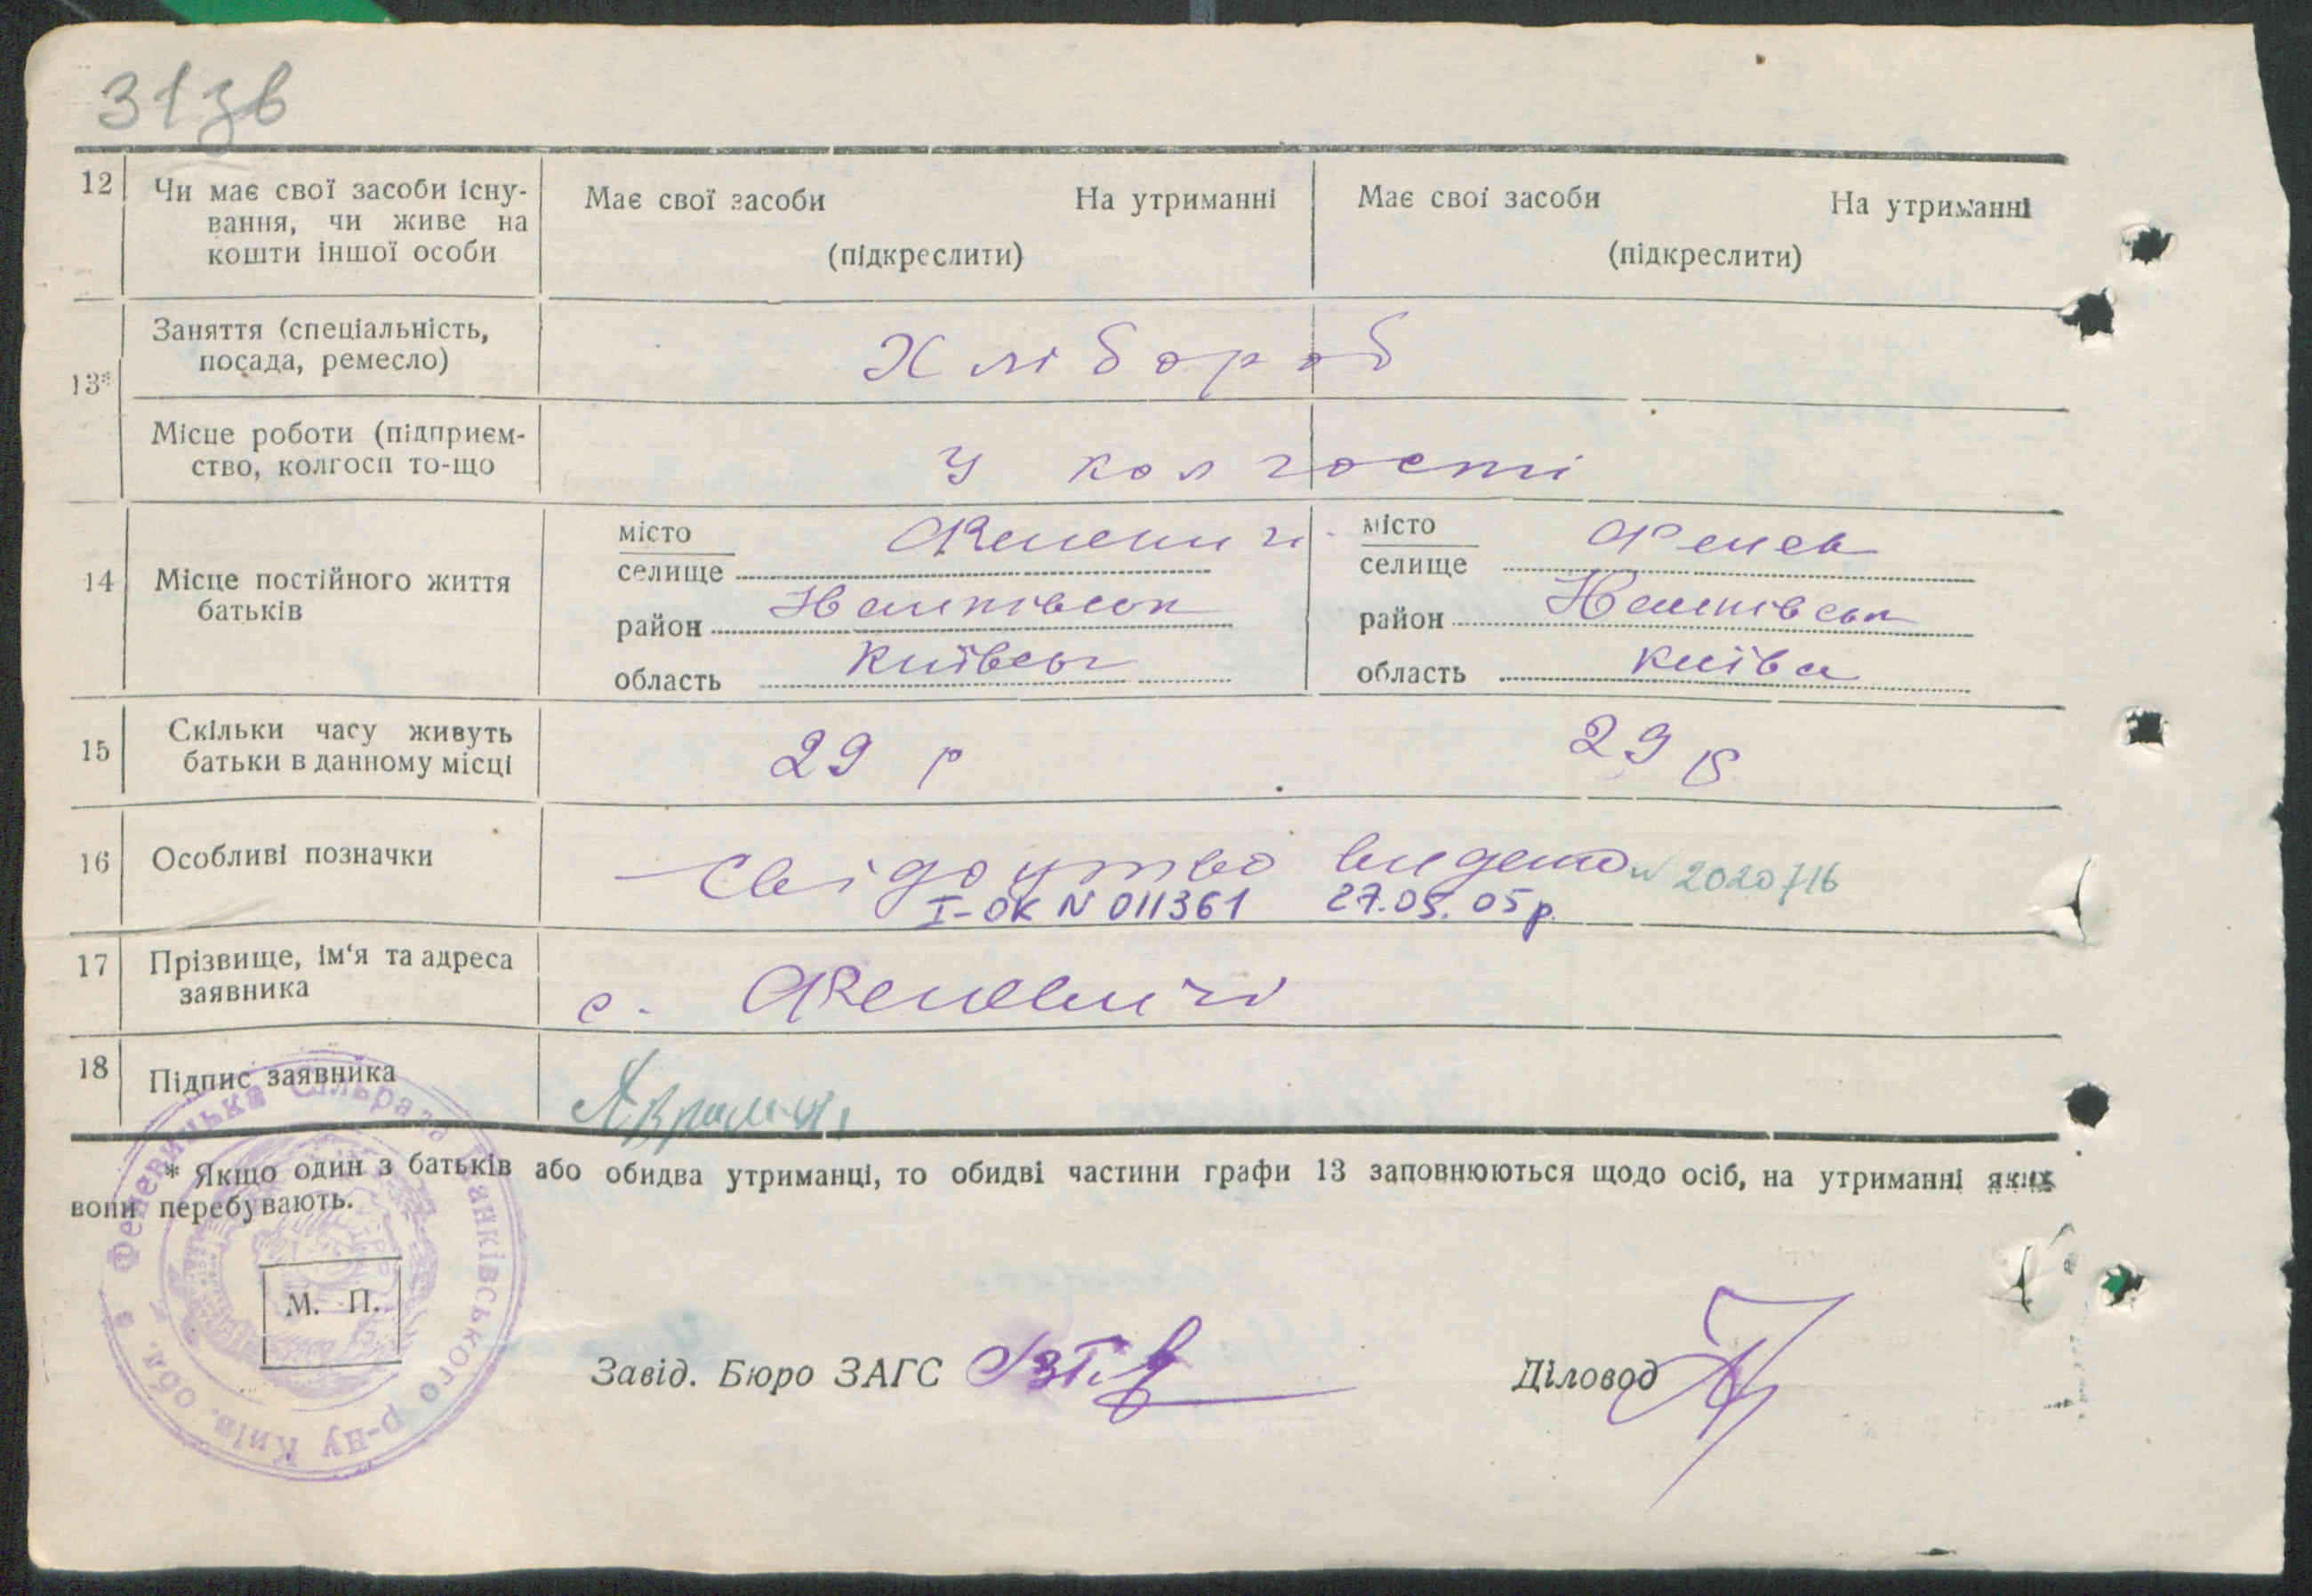 31зв
12 Чи має свої засоби існу-
вання, чи живе на
кошти іншої особи
Має свої засоби На утриманні
(підкреслити)
Має свої засоби На утриманні
(підкреслити)
13*
Заняття (спеціальність,
посада, ремесло)
Хлібороб
Місце роботи (підприєм-
ство, колгосп то-що
У колгоспі
14 Місце постійного життя
батьків
місто
селище Феневичі
район Іванківськ
область Київськ
місто
селище Фенев
район Іванківськ
область Київс
15 Скільки часу живуть
батьки в данному місці
29 р
29 р
16 Особливі позначки
Свідоцтво видано № 2020716
I-ОК N 011361 27.05.05р.
17 Прізвище, ім'я та адреса
заявника
с. Феневичі
18 Підпис заявника
* Якщо один з батьків або обидва утриманці, то обидві частини графи 13 заповнюються щодо осіб, на утриманні яких
вони перебувають.
Феневицька Сільрада Іванківського р-ну Київ. обл.
М. П.
Завід. Бюро ЗАГС
Діловод